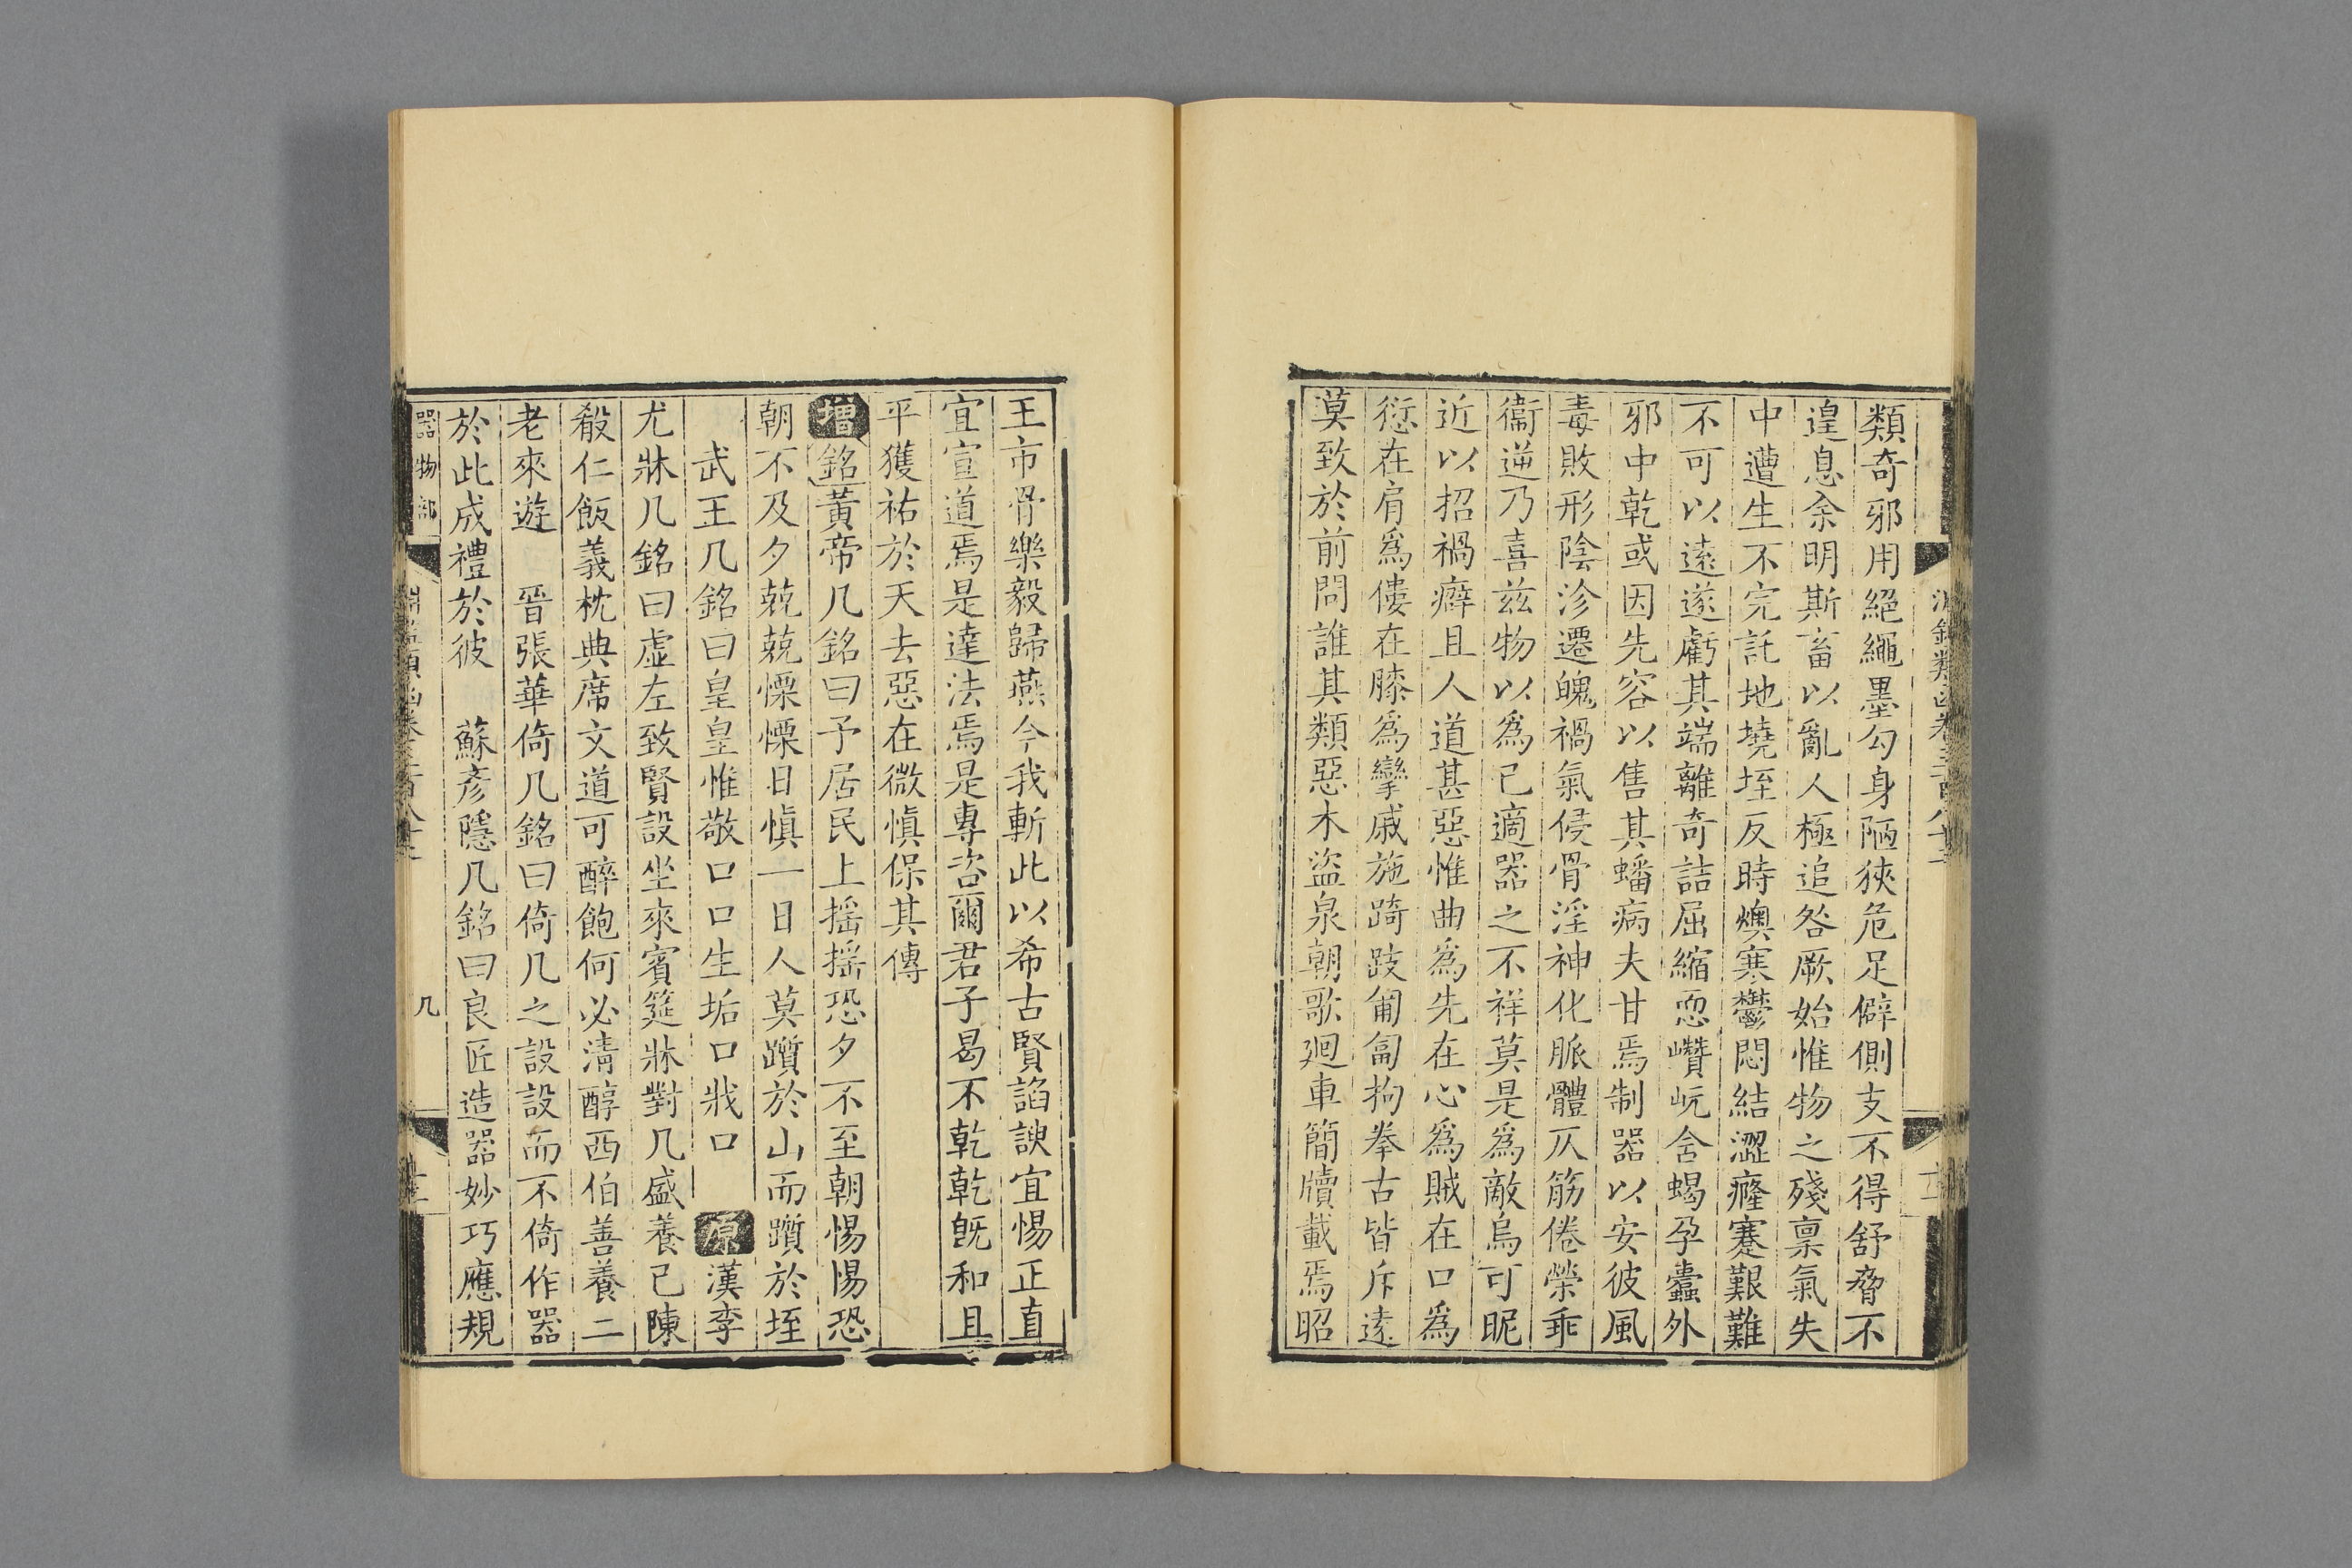 類奇邪用絕繩墨勾身陋狹危足僻側支不得舒脅不
遑息余明斯畜以亂人極追咎厥始惟物之殘稟氣失
中遭生不完託地墝垤反時燠寒鬱悶結澀癃蹇艱難
不可以遠遂虧其端離奇詰屈縮恧巑岏舍蝎孕蠹外
邪中乾或因先容以售其蟠病夫甘焉制器以安彼風
毒敗形陰沴遷魄禍氣侵骨淫神化脈體仄筋倦榮乖
衞逆乃喜兹物以爲已適器之不祥莫是爲敵烏可昵
近以招禍癖且人道甚惡惟曲爲先在心爲賊在口爲
愆在肩爲僂在膝爲攣戚施踦跂匍匐拘拳古皆斥遠
莫致於前問誰其類惡木盜泉朝歌廻車簡牘載焉昭
王市骨樂毅歸燕今我斬此以希古賢諂諛宜惕正直
宜宣道焉是達法焉是專咨爾君子曷不乾乾旣和且
平獲祐於天去惡在微愼保其傳
增銘黃帝几銘曰予居民上摇摇恐夕不至朝惕惕恐
朝不及夕兢兢慄慄日愼一日人莫躓於山而躓於垤
武王几銘曰皇皇惟敬口口生垢口戕口 原漢李
尤牀几銘曰虛左致賢設坐來賓筵牀對几盛養已陳
殽仁飯義枕典席文道可醉飽何必清醇西伯善養二
老來遊 晉張華倚几銘曰倚几之設設而不倚作器
於此成禮於彼 蘇彥隱几銘曰良匠造器妙巧應規
器物部
几